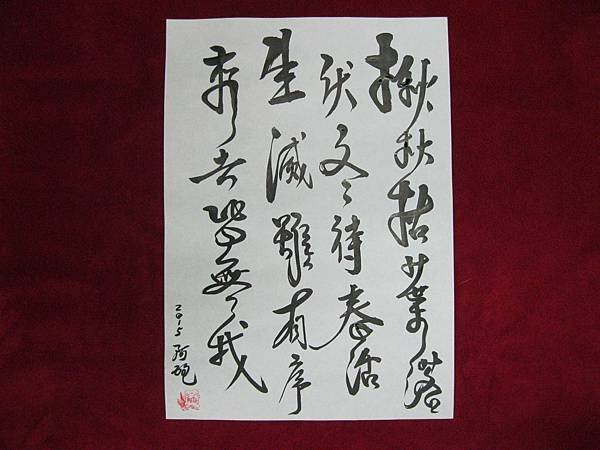 楸秋枯葉落
伏久待春活
生滅雖有序
來去皆無我
2015 阿